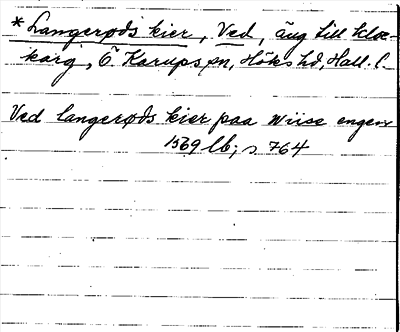 * Langerøds kier, Ved, äng till Klox-
karg, Ö Karups sn, Höks hd, Hall. l.
Ved langerøds kier paa wiise engen
1569 lb; s 764